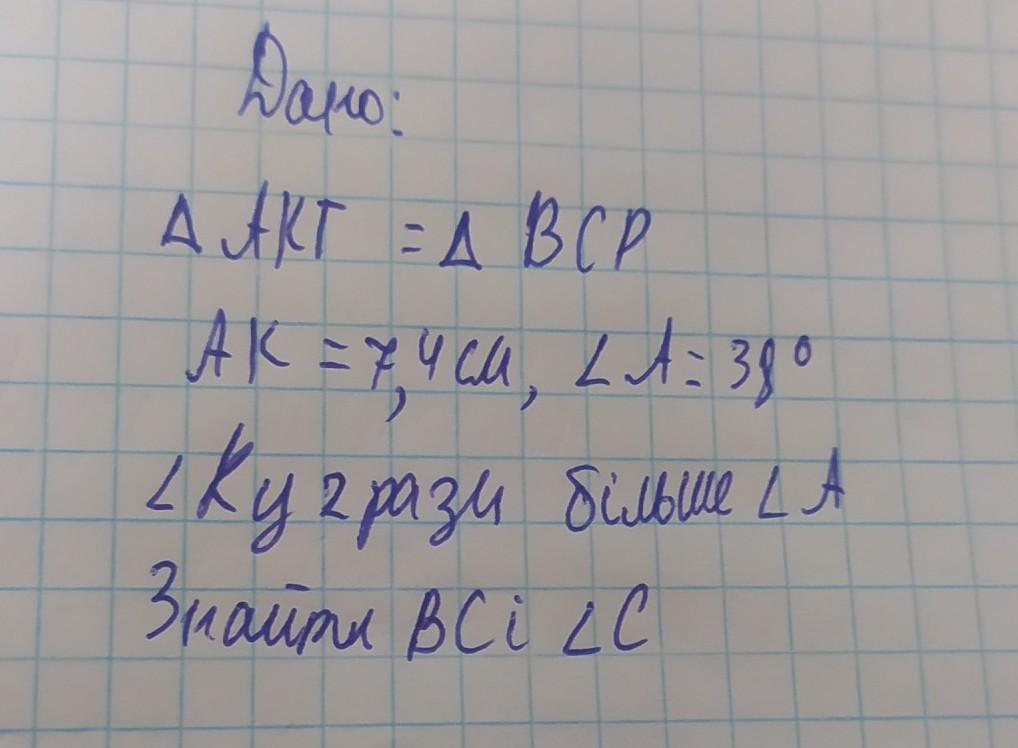 Дано:
Δ AKT = Δ BCP
AK = 7,4 см, ∠ A = 38°
∠ K у 2 рази більше ∠ A
Знайти BC і ∠ C